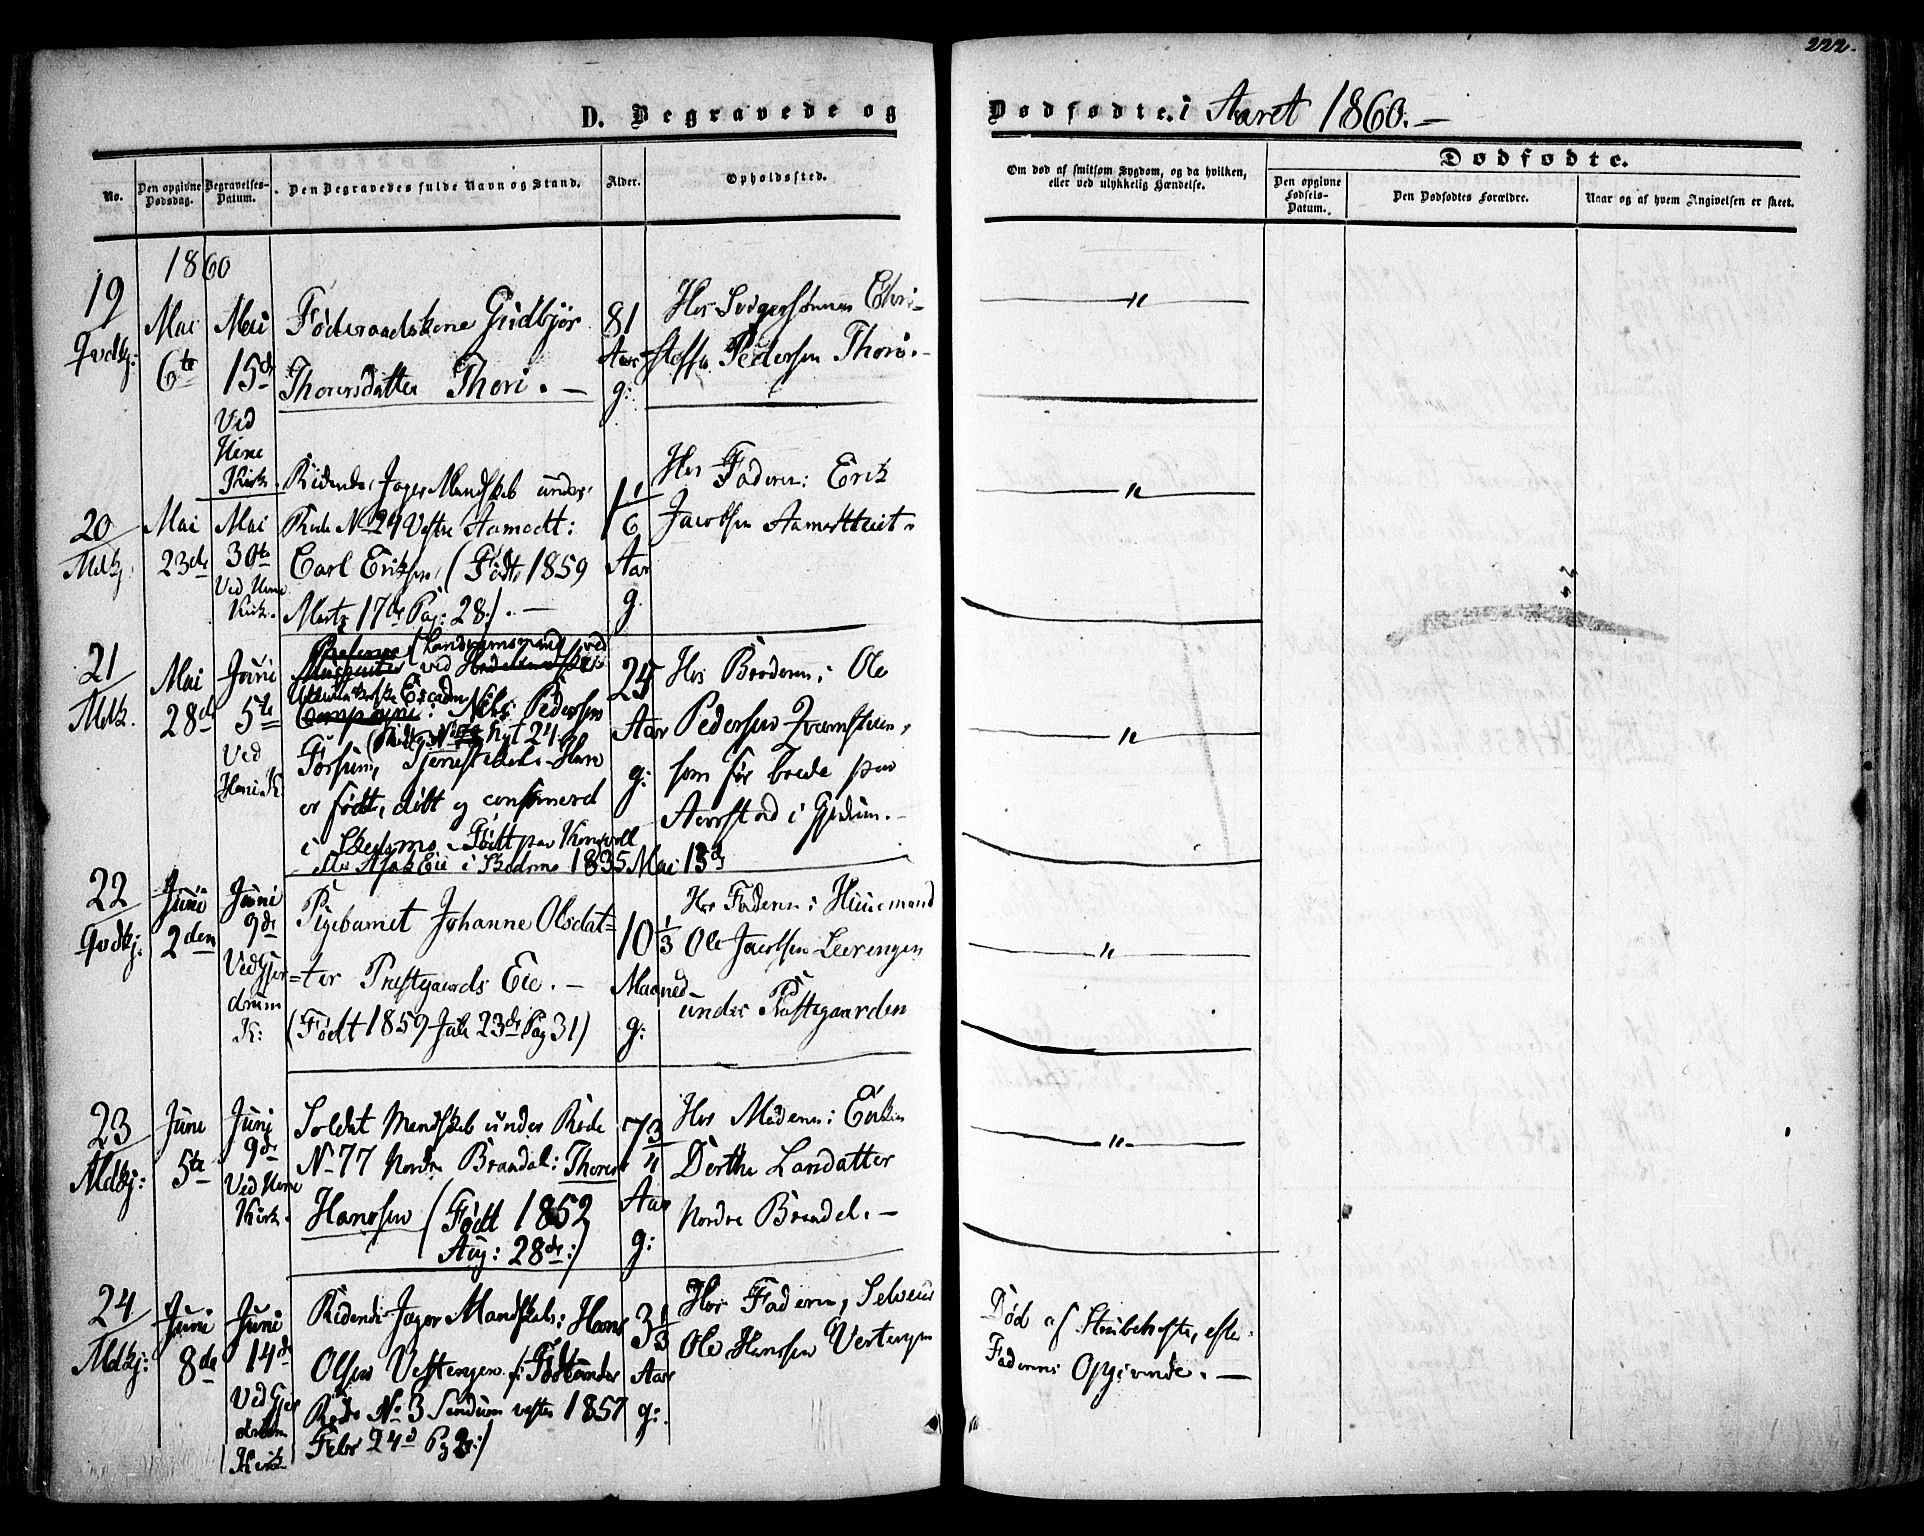 222.
D. Begravede og Dødfødte. i Aaret 1860. —
No.
Den opgivne Dødsdag.
Begravelses-Datum.
Den Begravedes fulde Navn og Stand.
Alder.
Opholdssted.
Om død af smitsom Sygdom, og da hvilken,
eller ved ulykkelig Hændelse.
Dødfødte.
Den opgivne Fødsels-Datum.
Den Dødfødtes Forældre.
Naar og af hvem Angivelsen er skeet.
1860
19
Qvdkj:
Mai
6te
Mai
15de
Ved
Heni
Kirk.
Føderaadskone Gudbjør
Thoresdatter Thori. —
81
Aar
g:
Hos Svigersønnen Chri-
stoffer Pedersen Thori. —
"
20
Mdkj.
Mai
23de
Mai
30te
Ved Heni
Kirk.
Ridende Jæger Mandskab under
Rode No 24 Vestre Aamodt:
Carl Eriksen, (Født 1859
Marts 17de Pag: 28:/. —
1 1/6
Aar
g.
Hos Faderen: Erik
Jacobsen
"
21
Mdkj.
Mai
28de
Juni
5te
Ved
Heni K.
ved
ved
Compagni: Pedersen
No Nyt 24
er født, døbt og confirmerd
i Skedsmo. Født paa
Eie i Skedsmo 1835 Mai 13de
25
Aar
g:
Hos Broderen: Ole
Pedersen
som før boede paa
i Gjerdrum. —
"
22
Qvdkj.
Juni
2den
Juni
9de
Ved Gjer
drum
K:
Pigebarnet Johanne Olsdat=
=ter Prestgaards Eie. —
(Født 1859 Juli 23de Pag 31)
10 1/3
Maaned
g:
Hos Faderen: Huusmand
Ole Jacobsen Leerengen
under Præstegaarden
"
23
Mdkj:
Juni
5te
Juni
9de
Ved Heni
Kirk.
Soldat Mandskab under Rode
No 77 Nordre Brandal: Thorer
Hanssen (Født 1852
Aug: 28de:/
7 3/4
Aar
g:
Hos Moderen: Enken
Dorthe Larsdatter
Nordre Brandal. —
"
24
Mdkj:
Juni
8de
Juni
14de
Ved Gjer
drum
Kirk
Ridende Jæger Mandskab: Hans
Olsen Vestengen /: Født under
Rode No 3 vestre 1857
Febr 24d Pag 2:/
3 1/3
Aar
g:.
Hos Faderen, Selveier
Ole Hanssen Vestengen
Død af Strubehoste, efter
Faderens Opgivende. —